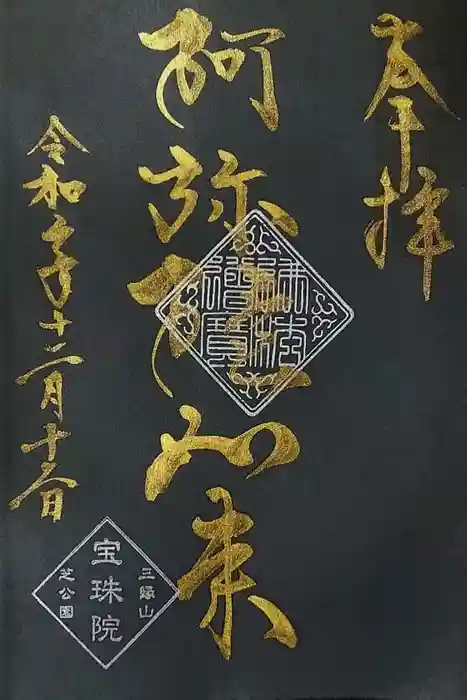 奉拝
阿弥陀如来
佛法
僧寶
令和年十二月十日
三縁山
宝珠院
芝公園